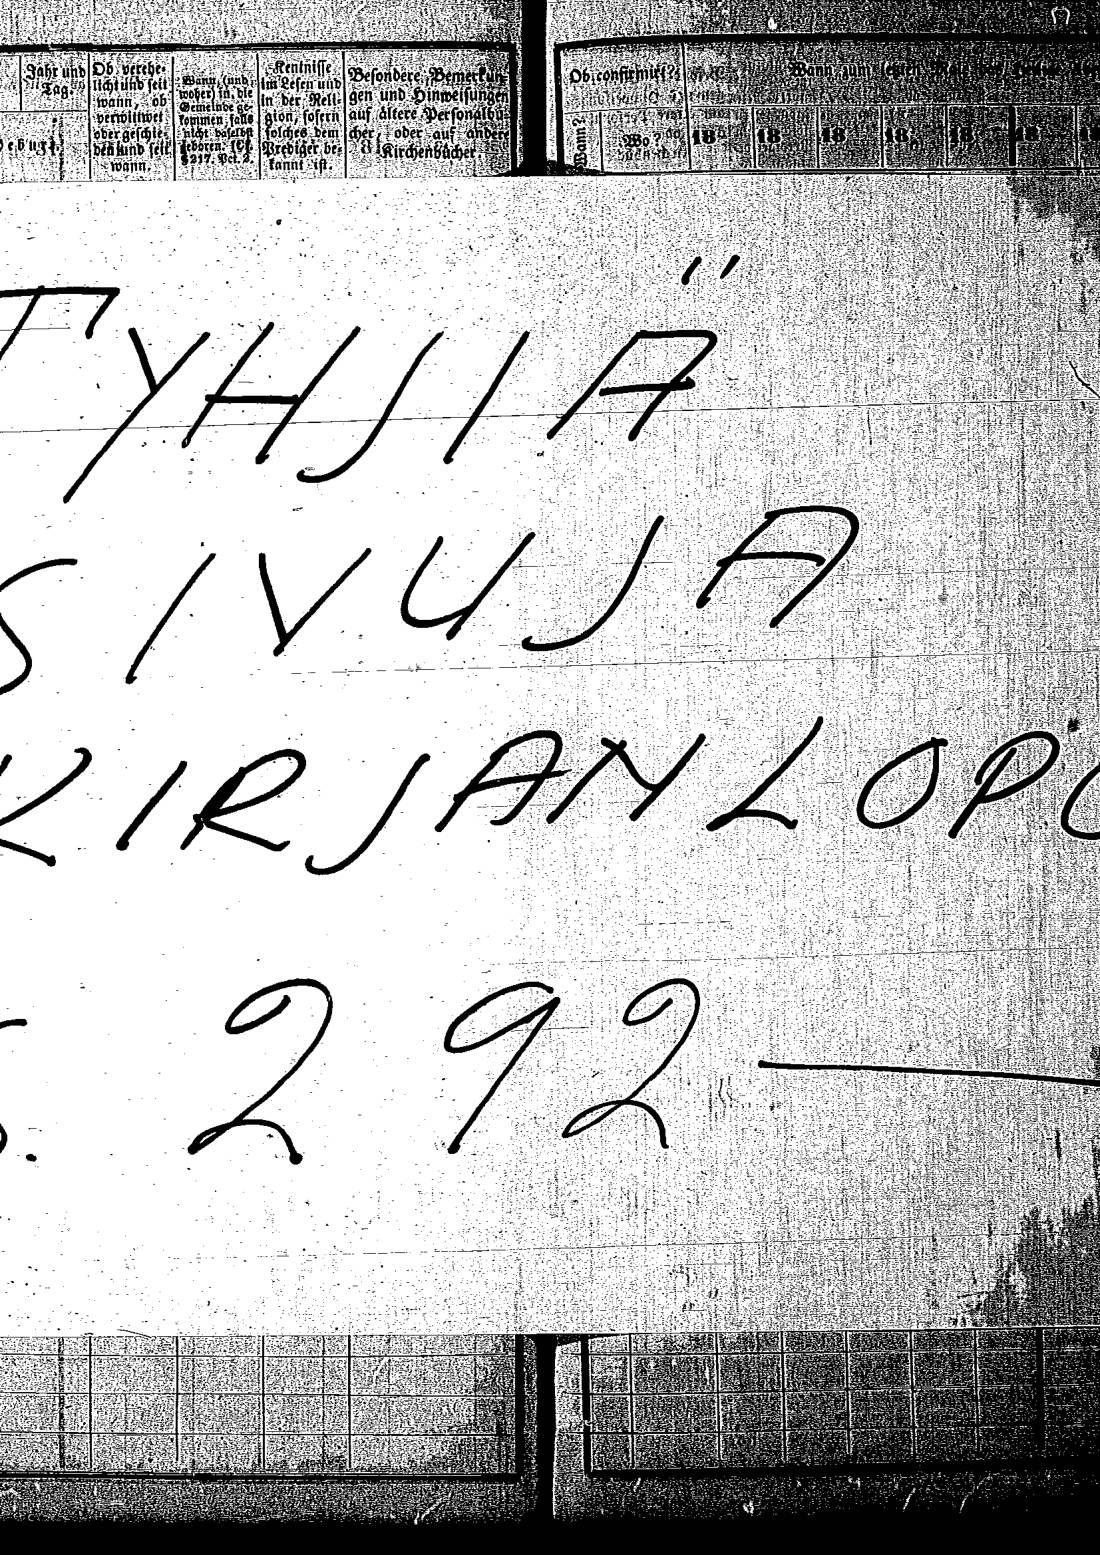 Jahr und
Tag.
Gebuzt.
Ob verehe-
licht und seit
wann, ob
verwittwet
oder geschie-
den und seit
wann.
Wann (und
woher) in die
Gemeinde ge-
kommen, falls
nicht daselbst
geboren.
Kentnisse
im Lesen und
in der Reli-
gion, sofern
solches dem
Prediger be-
kannt ist.
Besondere Bemerkun-
gen und Hinweisungen
auf ältere Personalbü-
cher, oder auf andere
Kirchenbücher.
Ob confirmirt?
Wann?
Wo?
Wann zum letzten Mal
18 18 18 18 18 18
TYHJIÄ
SIVUJA
KIRJANLOPU
S. 292 —